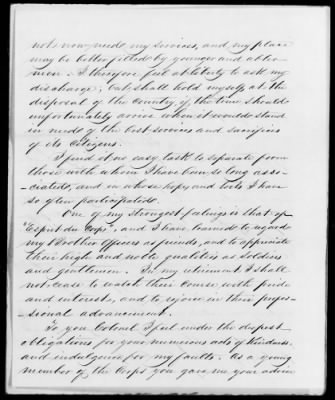 not now need my services, and my place
may be better filled by younger and abler
men. I therefore feel at liberty to ask my
discharge; but shall hold myself at the
disposal of the Country, if the time should
unfortunately arrive when it would stand
in need of the best services and sacrifices
of its Citizens.
I find it no easy task to separate from
those with whom I have been so long asso-
-ciated, and in whose hopes and toils I have
so often participated.
One of my strongest feelings is that of
"Esprit du Corps", and I have learned to regard
my Brother Officers as friends, and to appreciate
their high and noble qualities as Soldiers
and gentlemen. In my retirement I shall
not cease to watch their Course with pride
and interest, and to rejoice in their profes-
-sional advancement.
To you Colonel I feel under the deepest
obligations for your numerous acts of Kindness,
and indulgence for my faults. As a young
member of the Corps you gave me your advice